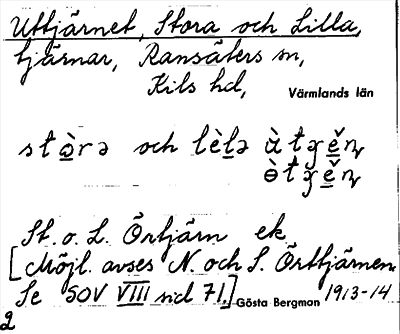 Uttjärnet, Stora och Lilla,
tjärnar, Ransäters sn,
Kils hd, Värmlands län
och
St. o. L. Örtjärn ek
[Möjl. avses N. och S. Örttjärnen
Se SOV VIII sid 71.] Gösta Bergman 1913-14
2